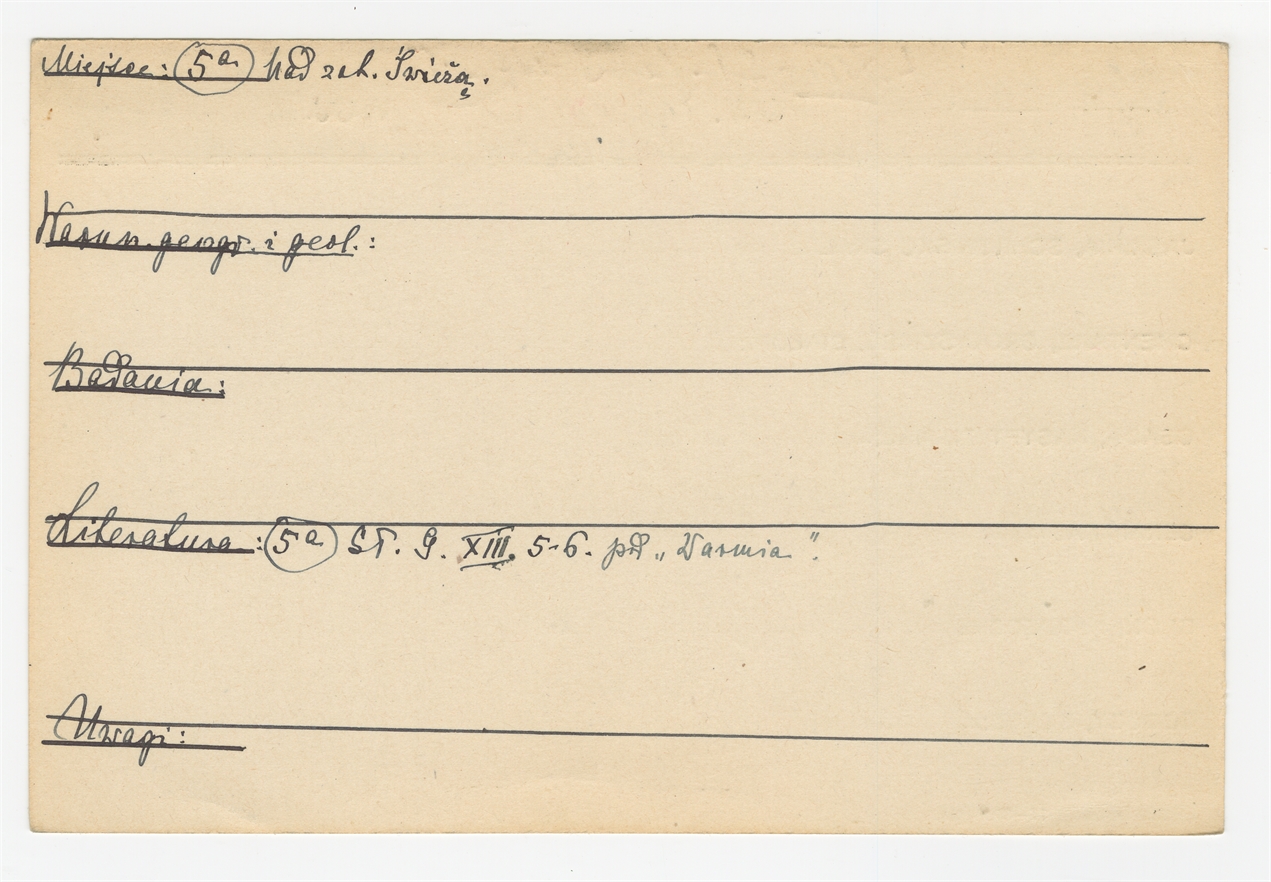 Miejsce: 5a Nad zat. Świeżą.
Warun. geogr. i geol.:
Badania:
Literatura: 5a Sł. G. XIII. 5-6. pd „Warmia".
Uwagi: